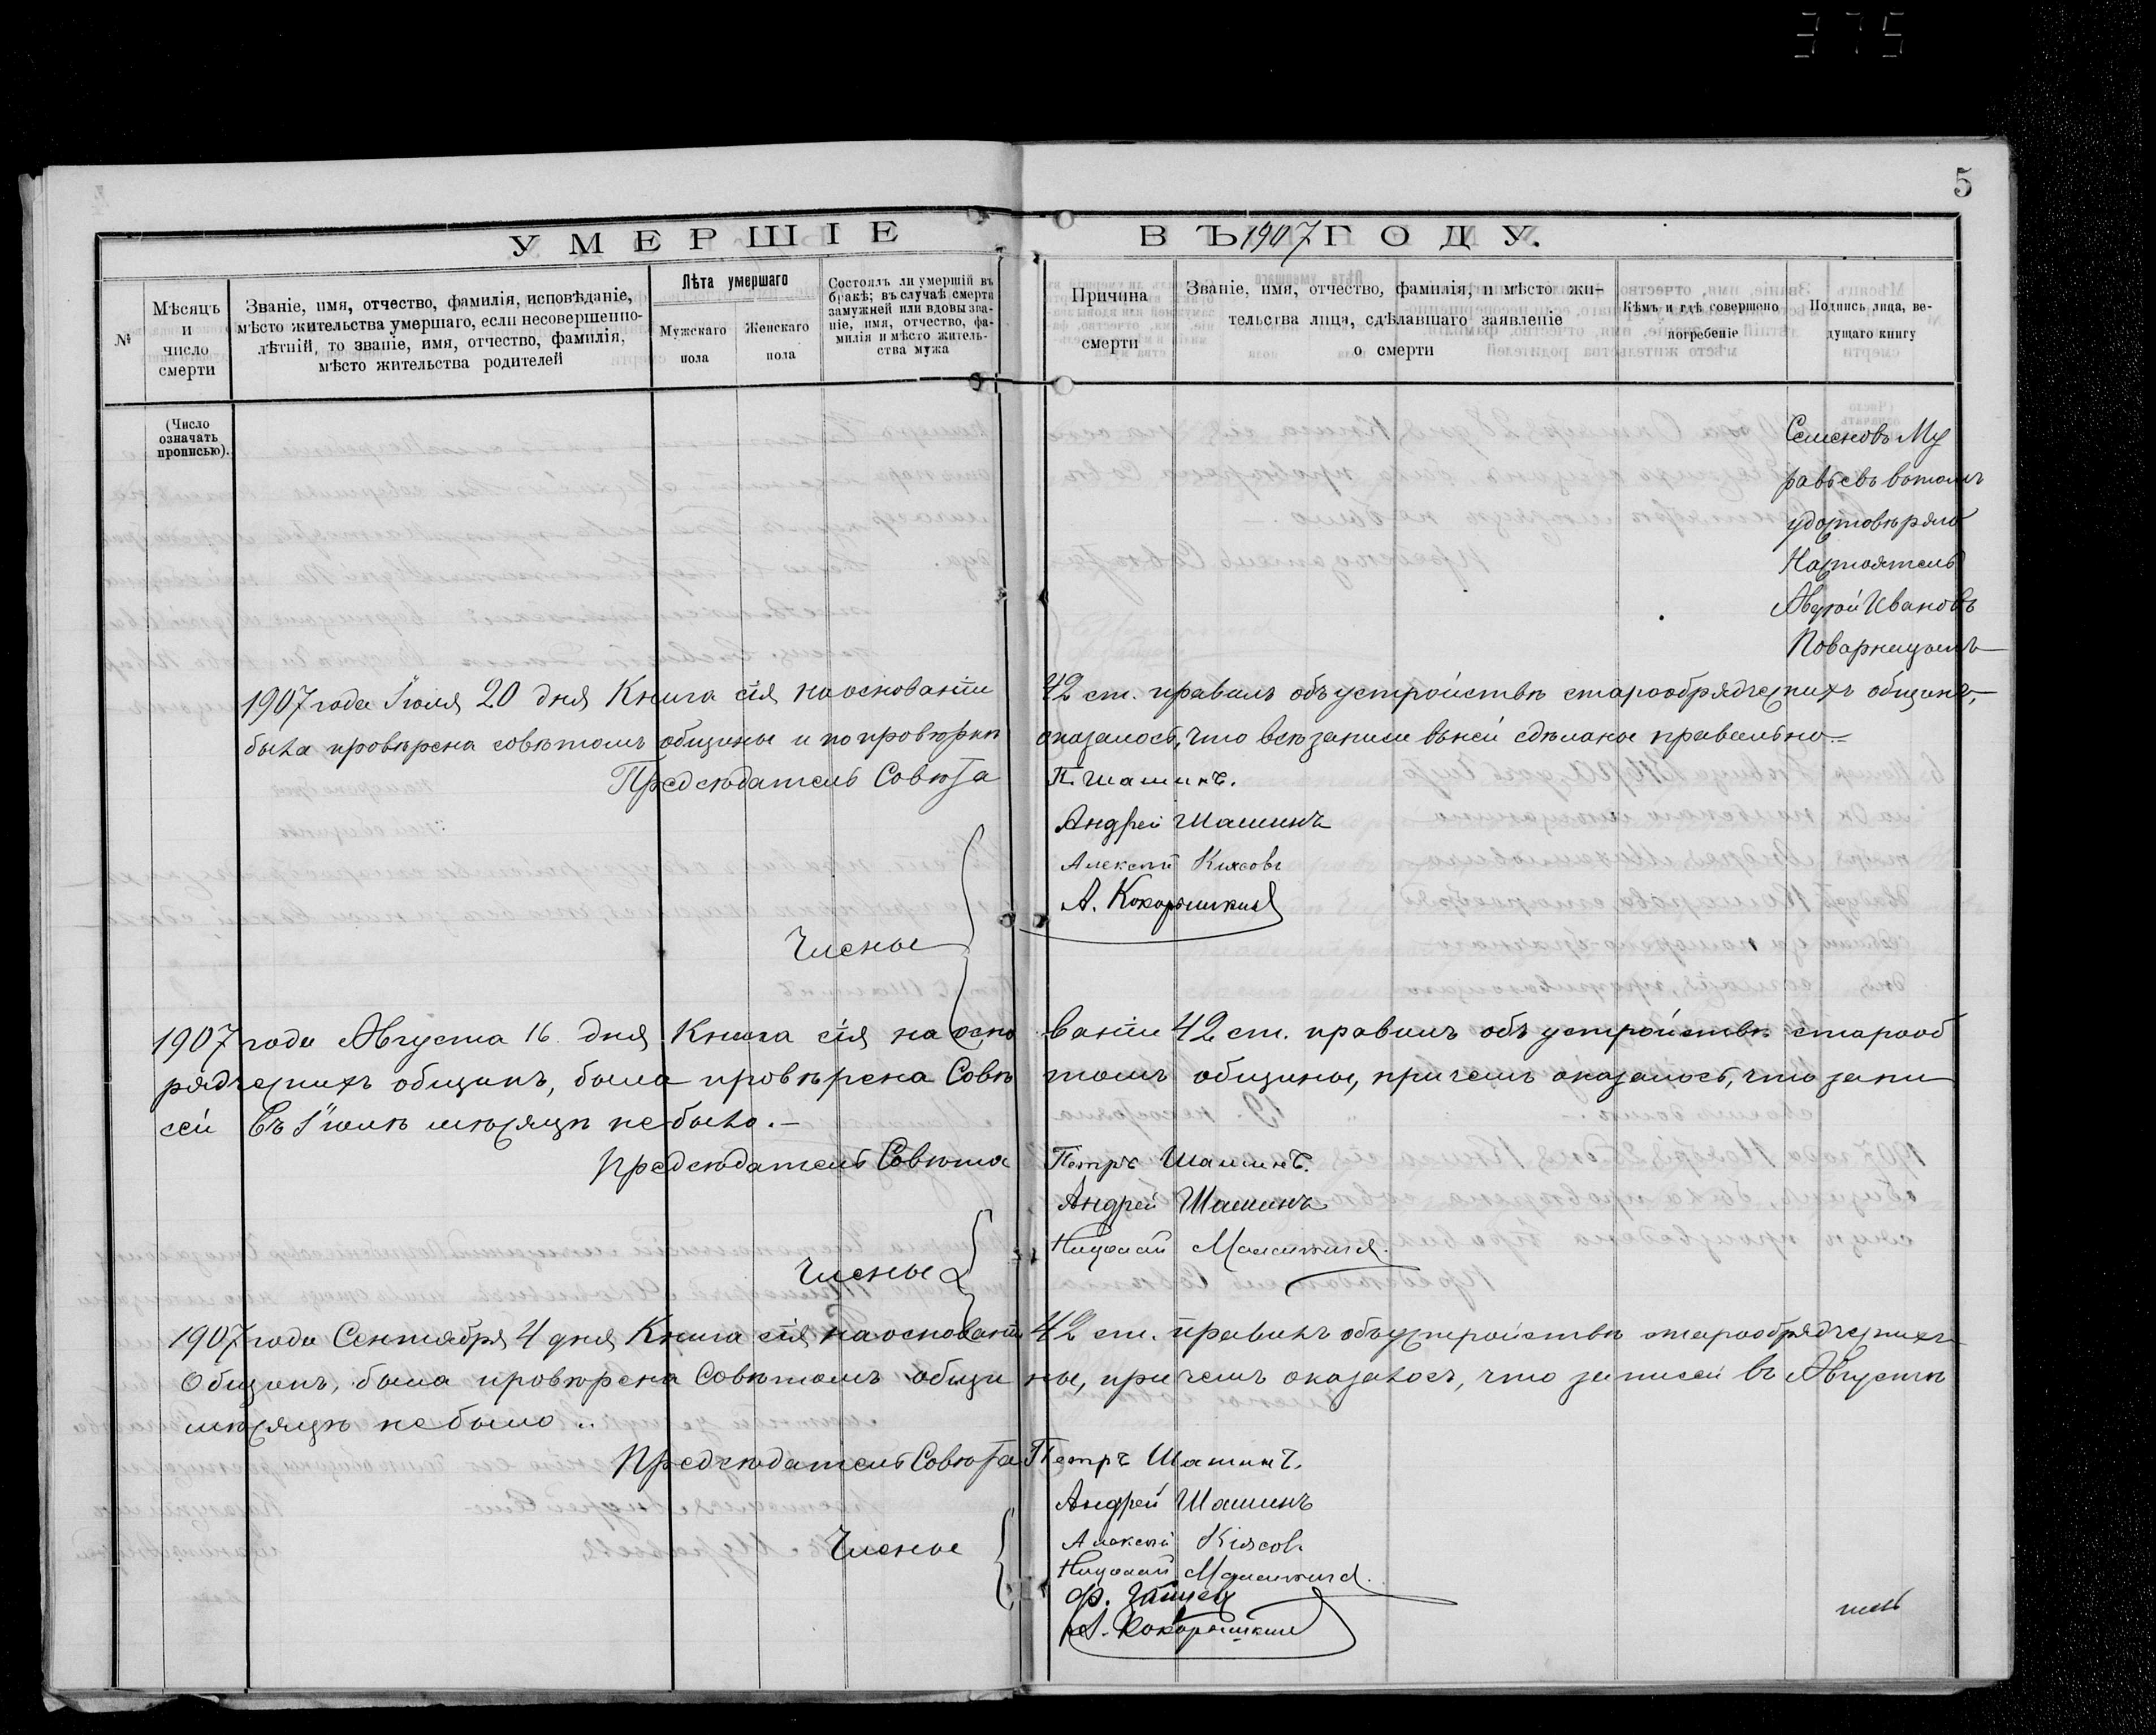 375
5
УМЕРШІЕ
ВЪ 1907 ГОДУ.
№
Мѣсяцъ
и
число
смерти
Званіе, имя, отчество, фамилія, исповѣданіе,
мѣсто жительства умершаго, если несовершенно-
лѣтній, то званіе, имя, отчество, фамилія,
мѣсто жительства родителей
Лѣта умершаго
Мужскаго
пола
Женскаго
пола
Состоялъ ли умершій въ
бракѣ; въ случаѣ смерти
замужней или вдовы зва-
ніе, имя, отчество, фа-
милія и мѣсто житель-
ства мужа
Причина
смерти
Званіе, имя, отчество, фамилія, и мѣсто жи-
тельства лица, сдѣлавшаго заявленіе
о смерти
Кѣмъ и гдѣ совершено
погребеніе
Подпись лица, ве-
дущаго книгу
(Число
означать
прописью).
Семеновъ Му
равьевъ в томъ
удостовѣряю
Настоятель
Авдѣй Ивановъ
1907 года Іюля 20 дня Книга сія на основаніи 42 ст. правилъ объ устройствѣ старообрядческихъ общинъ,
была провѣрена совѣтомъ общины и по провѣркѣ оказалось, что всѣ записи въ ней сдѣланы правильно.
Предсѣдатель Совѣта П. Шашинъ.
Андрей Шашинъ
Алексѣй Киясовъ
А. Кокорышкинъ
Члены
1907 года Августа 16 дня Книга сія на осно ваніи 42 ст. правилъ объ устройствѣ старооб
рядческихъ общинъ, была провѣрена Совѣ томъ общины, при чемъ оказалось, что запи
сей въ Іюлѣ мѣсяцѣ не было.—
Предсѣдатель Совѣта Петръ Шашинъ.
Андрей Шашинъ
Николай
Члены
1907 года Сентября 4 дня Книга сія на основаніи 42 ст. правилъ объ устройствѣ старообрядческихъ
Общинъ, была провѣрена Совѣтомъ общи ны, при чемъ оказалось, что записей въ Августѣ
мѣсяцѣ не было..
Предсѣдатель Совѣта Петръ Шашинъ.
Андрей Шашинъ
Члены
Алексѣй Киясов.
Николай
Ф. Зайцев
А. Кокорышкин